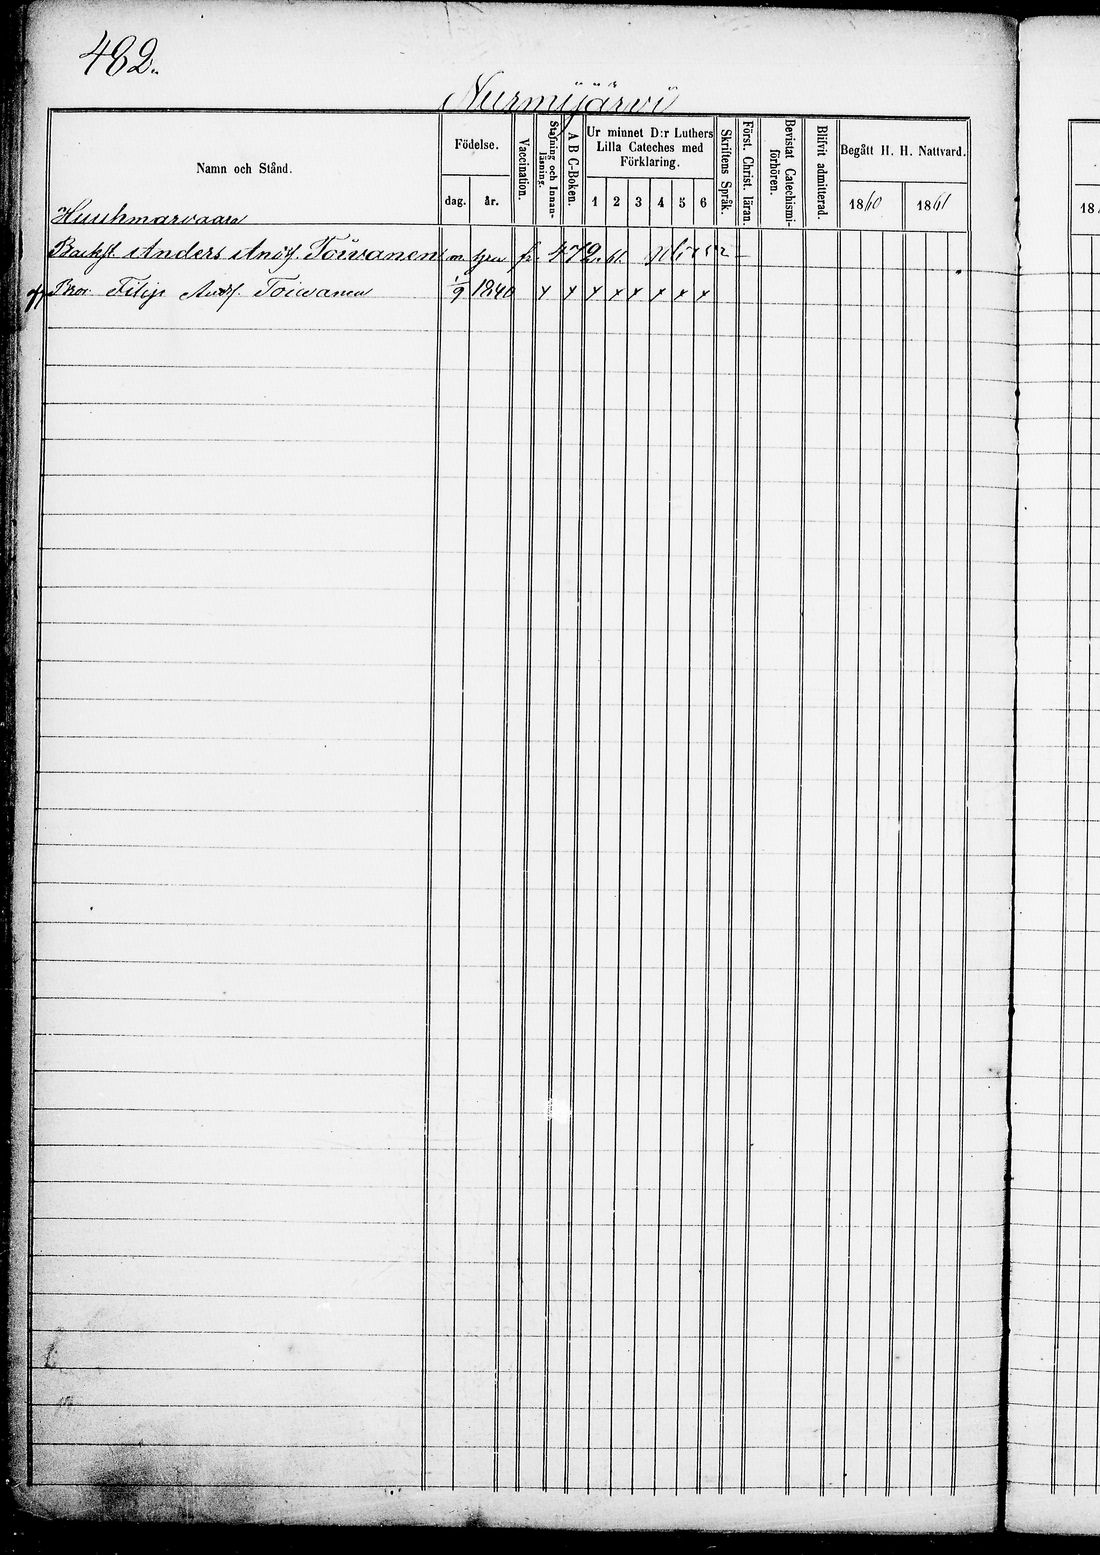 482.
Nurmijärvi
Namn och Stånd.
Födelse.
dag.
år.
Vaccination.
Stafning och Innanläsning.
A B C-Boken.
Ur minnet D:r Luthers Lilla Cateches med Förklaring.
1 2 3 4 5 6
Skriftens Språk.
Först. Christ. läran.
Bevistat Catechismiförhören.
Blifvit admitterad.
Begått H. H. Nattvard.
1860
1861
18
Huuhmarvaara
Anders Toivanen fr. 472
Bror. Filip Toivanen 1/9 1840 x x x x x x x x